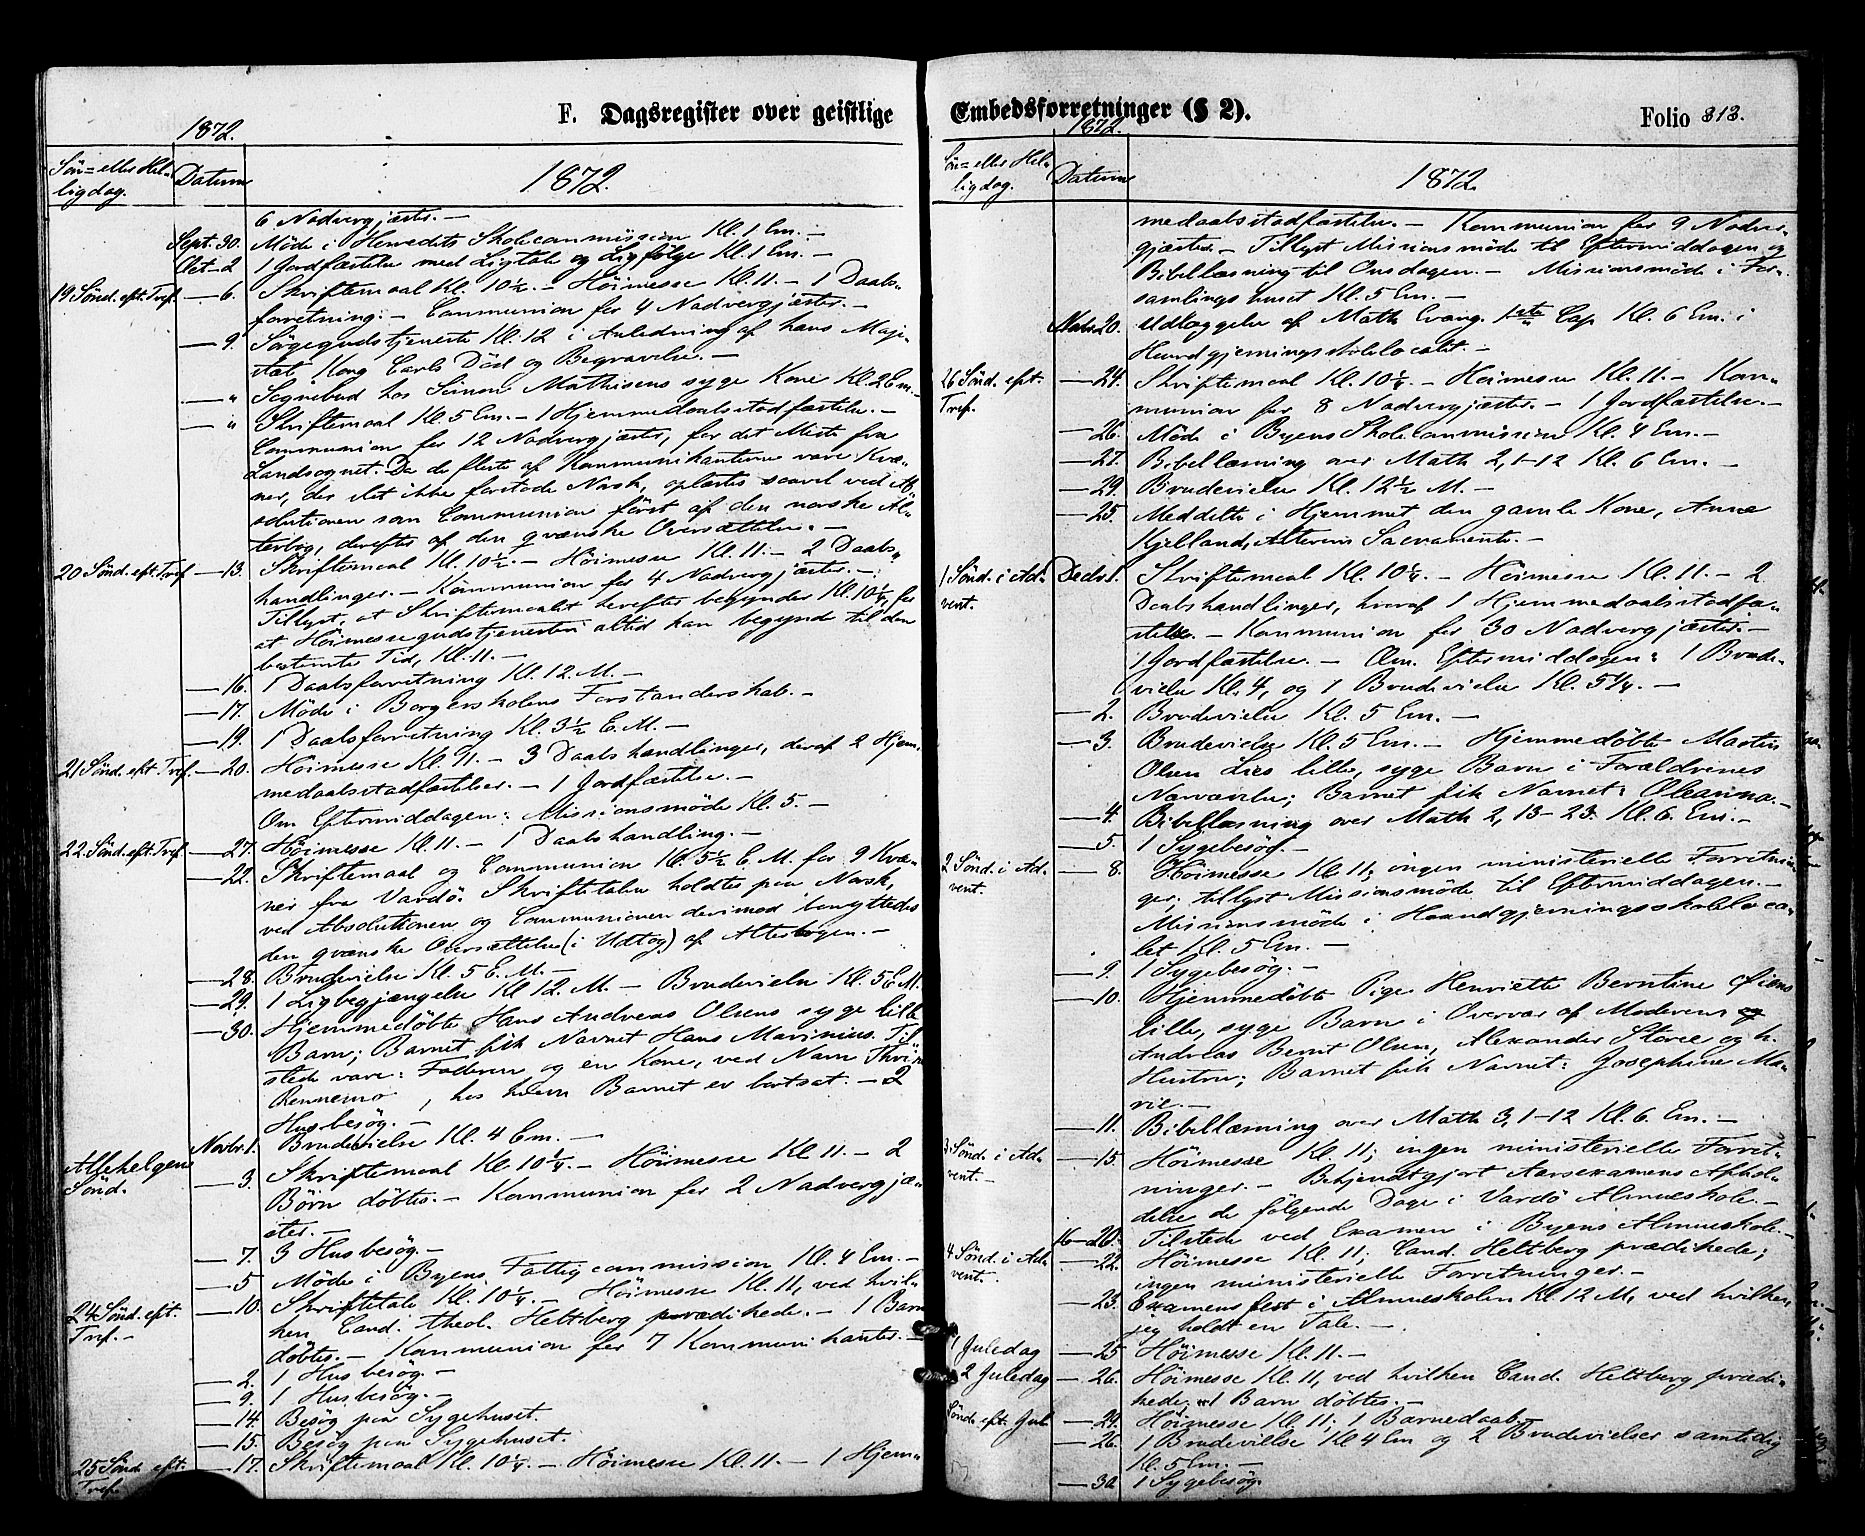 F. Dagsregister over geistlige
1872.
Sön= eller Hel-
ligdag.
Datum
1872.
6 Nadvergjæster.—
Sept. 30. Möde i Herredets Skolecommission Kl. 1 Em.—
Oct. 2 1 Jordfæstelse med Ligtale og Ligfölge Kl. 1 Em.—
19 Sönd. eft. Tref. — 6. Skriftemaal Kl. 10½.— Höimesse Kl. 11.— 1 Daabs-
forretning.— Communion for 4 Nadvergjæster.—
— 9. Sörgegudstjeneste Kl. 12 i Anledning af hans Maje-
stæt Kong Carls Död og Begravelse.—
— " Sognebud hos Simon Mathisens syge Kone Kl. 2 Em.—
— " Skriftemaal Kl. 5 Em.— 1 Hjemmedaabsstadfæstelse.—
Communion for 12 Nadvergjæster, for det Meste fra
Landsognet. Da de fleste af Kommunikanterne vare Kvæ-
ner, der slet ikke forstode Norsk, oplæstes saavel ved Ab-
solutionen som Communion först af den norske Al-
terbog, derefter af den qvænske Oversættelse.—
20 Sönd. eft. Tref. — 13. Skriftemaal Kl. 10½.— Höimesse Kl. 11.— 2 Daabs-
handlinger.— Kommunion for 4 Nadvergjæster.—
Tillyst, at Skriftemaalet herefter begynder Kl. 10¼, for
at Höimessegudstjenesten altid kan begynde til den
bestemte Tid, Kl. 11.—
— 16. 1 Daabsforretning Kl. 12 M.—
— 17. Möde i Borgerskolens Forstanderskab.—
— 19. 1 Daabsforretning Kl. 3½ E.M.—
21 Sönd. eft. Tref. — 20. Höimesse Kl. 11.— 3 Daabshandlinger, deraf 2 Hjem-
medaabsstadfæstelser.— 1 Jordfæstelse.—
Om Eftermiddagen: Missionsmöde Kl. 5.—
22. Sönd. eft. Tref. — 27. Höimesse Kl. 11.— 1 Daabshandling.—
— 22. Skriftemaal og Communion Kl. 5½ E.M. for 9 Kvæ-
ner fra Vardö. Skriftetalen holdtes paa Norsk,
ved Absolutionen og Communionen derimod benyttedes
den qvænske Oversættelse (i Udtog) af Alterbogen.—
— 28. Brudevielse Kl. 5 E.M.—
— 29. 1 Ligbegjængelse Kl 12. M.— Brudevielse Kl. 5 E.M.
— 30. Hjemmedöbte Hans Andreas Olsens syge lille
Barn; Barnet fik Navnet Hans Marinius. Til-
stede vare: Faderen og en Kone, ved Navn
Rennemo, hos hvem Barnet er bortsat.— 2
Husbesög.—
Novbr. 1. Brudevielse Kl. 4 Em.—
Allehelgens
Sönd. — 3. Skriftemaal Kl 10¼.— Höimesse Kl 11.— 2
Börn döbtes.— Kommunion for 2 Nadvergjæ-
ster.—
— 7. 3 Husbesög.—
— 5 Möde i Byens Fattigcommission Kl. 4 Em.—
24 Sönd. eft.
Tref.— — 10. Skriftetale Kl. 10¼.— Höimesse Kl. 11, ved hvil-
ken Cand. theol. Heltberg prædikede.— 1 Barn
döbtes.— Kommunion for 7 Kommunikanter.—
— 2. 1 Husbesög.—
— 9. 1 Husbesög.—
— 14. Besög paa Sygehuset.
— 15. Besög paa Sygehuset.
25 Sönd. eft.
Tref. — 17. Skriftemaal Kl. 10¼.— Höimesse Kl. 11.— 1 Hjem-
Embedsforretninger (§ 2).
Folio 313.
1872.
Sön= eller Hel-
ligdag.
Datum
1872.
medaabsstadfæstelse.— Kommunion for 9 Nadver-
gjæster.— Tillyst Missionsmöde til Eftermiddagen og
Bibellæsning til Onsdagen.— Missionsmöde i For-
samlingshuset Kl. 5 Em.—
Novbr. 20. Udlæggelse af Math Evang. 1ste Cap Kl. 6 Em. i
Haandgjerningsskolelocalet.—
26 Sönd. eft.
Tref. — 24. Skriftemaal Kl. 10¼.— Höimesse Kl. 11.— Kom-
munion for 8 Nadvergjæster.— 1 Jordfæstelse.—
— 26. Möde i Byens Skolecommission Kl. 4 Em.—
— 27. Bibellæsning over Math 2, 1—12 Kl. 6 Em.—
— 29. Brudevielse Kl. 12½ M.—
— 25. Meddelte i Hjemmet den gamle Kone, Anne
Kjelland, Alterens Sacramente.—
1 Sönd. i Ad-
vent. Decbr. 1. Skriftemaal Kl. 10¼.— Höimesse Kl. 11.— 2
Daabshandlinger, hvoraf 1 Hjemmedaabsstadfæ-
stelse.— Kommunion for 30 Nadvergjæster.—
1 Jordfæstelse.— Om Eftermiddagen: 1 Brude-
vielse Kl. 4, og 1 Brudevielse Kl. 5¼.—
— 2. Brudevielse Kl. 5 Em.—
— 3. Brudevielse Kl. 5 Em.— Hjemmedöbte Martin
Olsen Lies lille, syge Barn i Forældrenes
Nærværelse; Barnet fik Navnet: Oleanna.—
— 4. Bibellæsning over Math 2, 13—23. Kl. 6. Em.—
— 5. 1 Sygebesög.—
2 Sönd. i Ad-
vent. — 8. Höimesse Kl. 11; ingen ministerielle Forretnin-
ger; tillyst Missionsmöde til Eftermiddagen.—
Missionsmöde i Haandgjerningsskoleloca-
let Kl. 5 Em.—
— 9. 1 Sygebesög.—
— 10. Hjemmedöbte Pige Henriette Berntine Øiens
lille, syge Barn i Overvær af Moderen og
Andreas Bernt Olsen, Alexander Storee og h.
Hustru; Barnet fik Navnet: Josephine Ma-
rie.—
— 11. Bibellæsning over Math 3, 1—12 Kl. 6. Em.—
3. Sönd. i Ad-
vent.— — 15. Höimesse Kl. 11; ingen ministerielle Forret-
ninger.— Bekjendtgjort Aarsexamens Afhol-
delse de fölgende Dage i Vardö Almueskole.—
16—20. Tilstede ved Examen i Byens Almueskole.—
4. Sönd. i Ad-
vent. — 22. Höimesse Kl. 11; Cand. Heltberg prædikede;
ingen ministerielle Forretninger.—
— 23. Examensfest i Almueskolen Kl 12 M, ved hvilken
jeg holdt en Tale.—
1 Juledag — 25 Höimesse Kl. 11.—
2 Juledag — 26. Höimesse Kl. 11, ved hvilken Cand. Heltberg prædi-
kede; 1 Barn döbtes.—
Sönd. eft. Jul — 29. Höimesse Kl. 11; 1 Barnedaab.—
— 26. 1 Brudevielse Kl 4 Em og 2 Brudevielser samtidig
Kl. 5 Em.—
— 30. 1 Sygebesög.